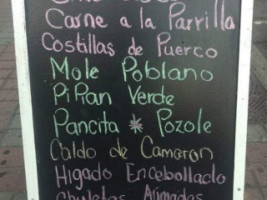 Carne a la Parrilla
Costillas de Puerco
Mole Poblano
PiPian Verde
Pancita * Pozole
Caldo de Camaron
Higado Encebollado
Chuletas Ahumadas